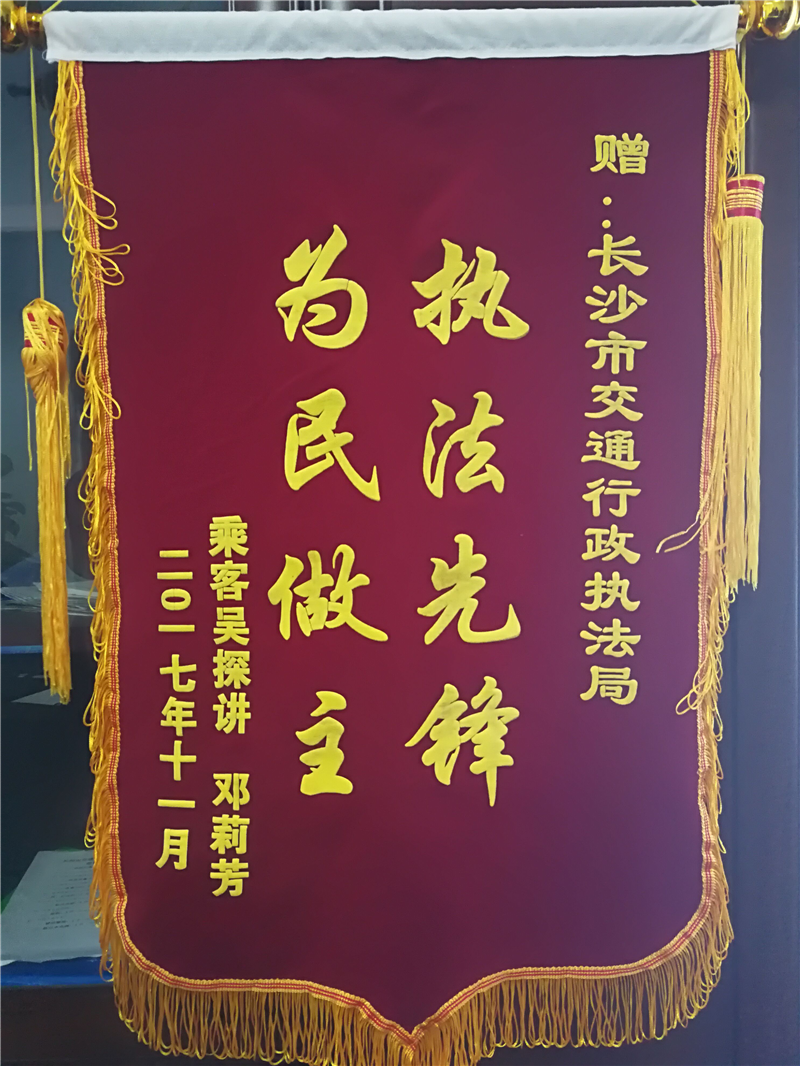 赠：长沙市交通行政执法局
执法先锋
为民做主
乘客吴探讲 邓莉芳
二〇一七年十一月